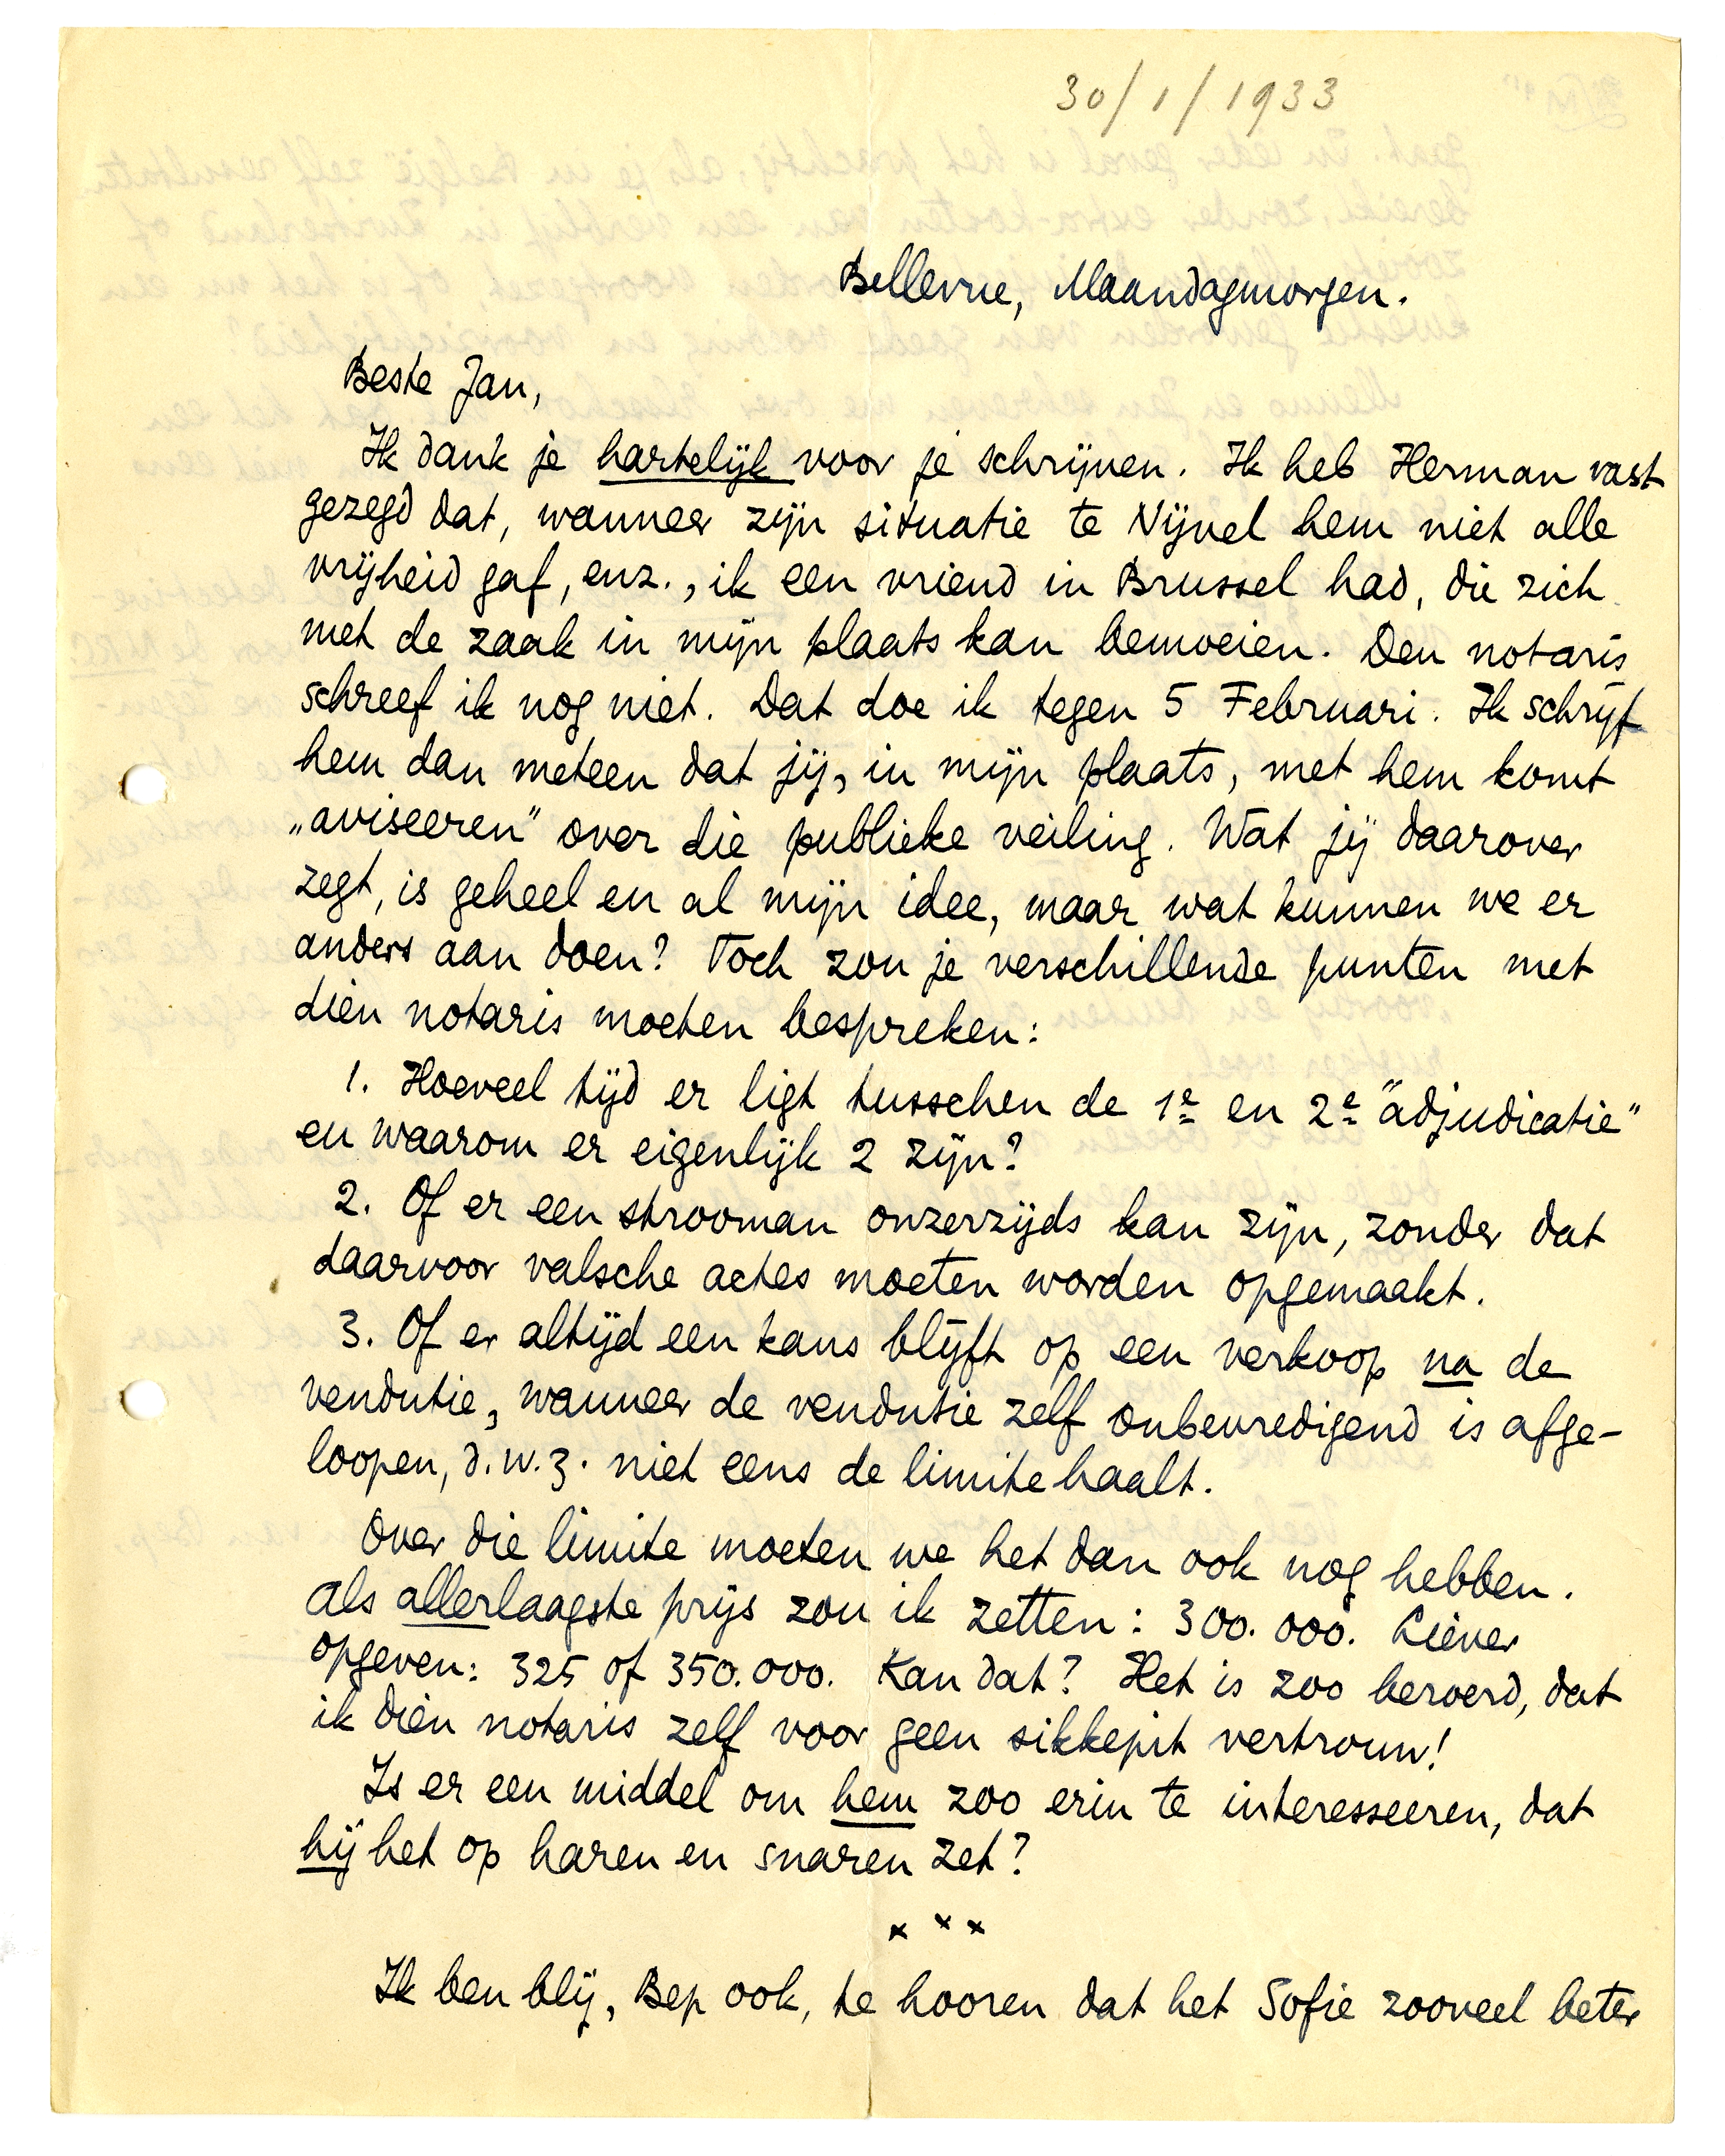 30/1/1933
Bellevue, Maandagmorgen.
Beste Jan,
Ik dank je hartelijk voor je schrijven. Ik heb Herman vast
gezegd dat, wanneer zijn situatie te Nijvel hem niet alle
vrijheid gaf, enz., ik een vriend in Brussel had, die zich
met de zaak in mijn plaats kan bemoeien. Den notaris
schreef ik nog niet. Dat doe ik tegen 5 Februari. Ik schrijf
hem dan meteen dat jij, in mijn plaats, met hem komt
„aviseeren" over die publieke veiling. Wat jij daarover
zegt, is geheel en al mijn idee, maar wat kunnen we er
anders aan doen? Toch zou je verschillende punten met
dien notaris moeten bespreken:
1. Hoeveel tijd er ligt tusschen de 1e en 2e "adjudicatie"
en waarom er eigenlijk 2 zijn?
2. Of er een strooman onzerzijds kan zijn, zonder dat
daarvoor valsche actes moeten worden opgemaakt.
3. Of er altijd een kans blijft op een verkoop na de
vendutie, wanneer de vendutie zelf onbevredigend is afge-
loopen, d.w.z. niet eens de limite haalt.
Over die limite moeten we het dan ook nog hebben.
Als allerlaagste prijs zou ik zetten: 300.000. Liever
opgeven: 325 of 350.000. Kan dat? Het is zoo beroerd, dat
ik dien notaris zelf voor geen sikkepit vertrouw!
Is er een middel om hem zoo erin te interesseeren, dat
hij het op haren en snaren zet?
x x x
Ik ben blij, Bep ook, te hooren dat het Sofie zooveel beter